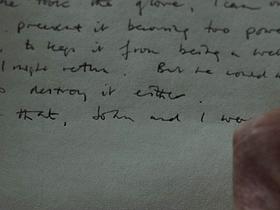 the glove, I can
prevent it becoming too power
to keep it from being a
I might return. But he would
destroy it either.
that, John and I were